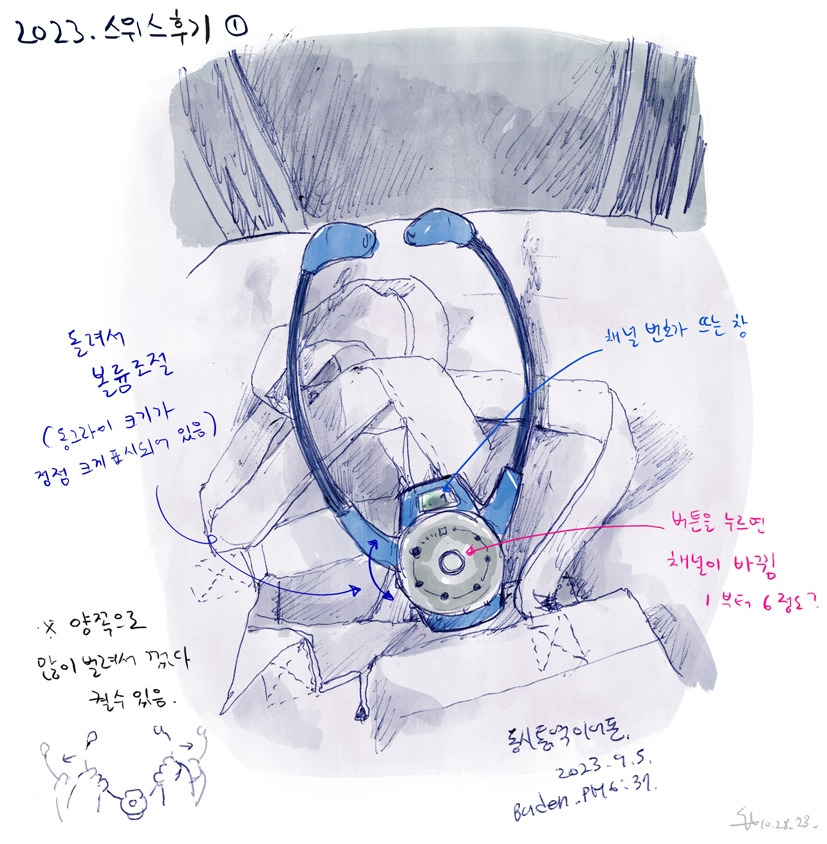 2023. 스위스후기 ①
돌려서
볼륨조절
(동그라미 크기가
점점 크게 표시되어 있음)
채널 번호가 뜨는 창
버튼을 누르면
채널이 바뀜
1 부터 6 정도?
※ 양쪽으로
많이 벌려서 껐다
켤수 있음.
동시통역 이어폰.
2023. 9. 5.
Baden. PM 6:37.
10.28.23.